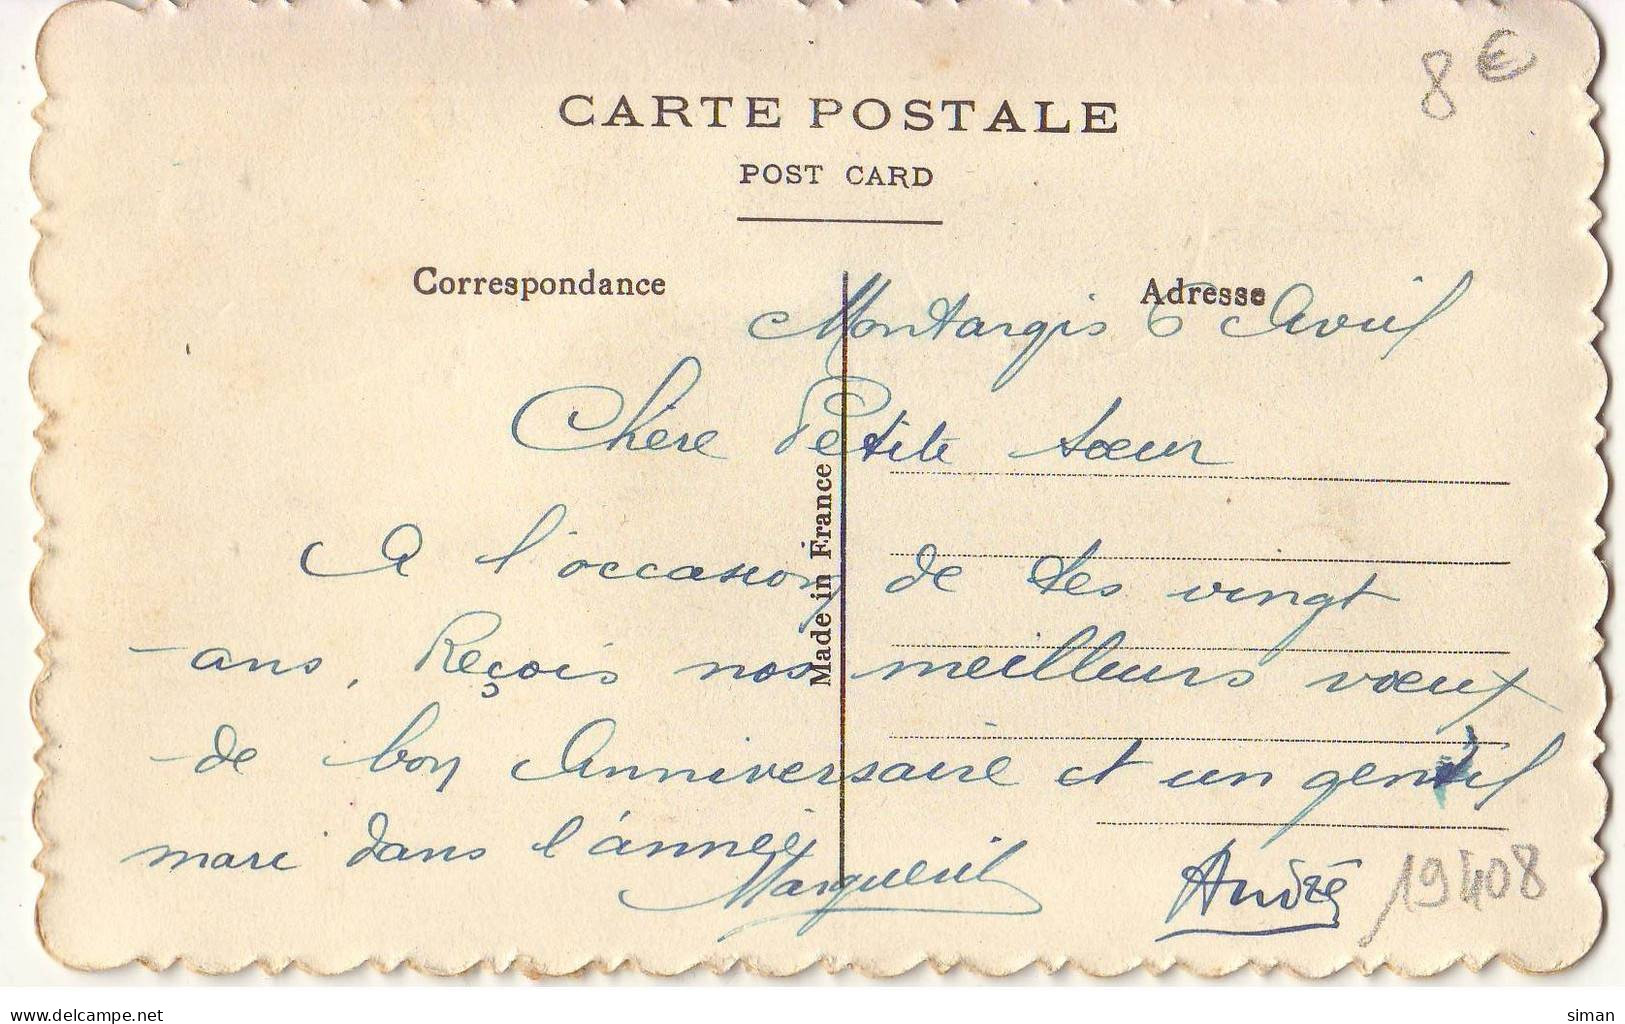 8 €
CARTE POSTALE
POST CARD
Correspondance
Adresse
Made in France
Montargis 6 Avril
Chère Petite sœur
A l'occasion de tes vingt
ans, Reçois nos meilleurs vœux
de bon Anniversaire et un gentil
mari dans l'année
André
19408
www.delcampe.net
siman